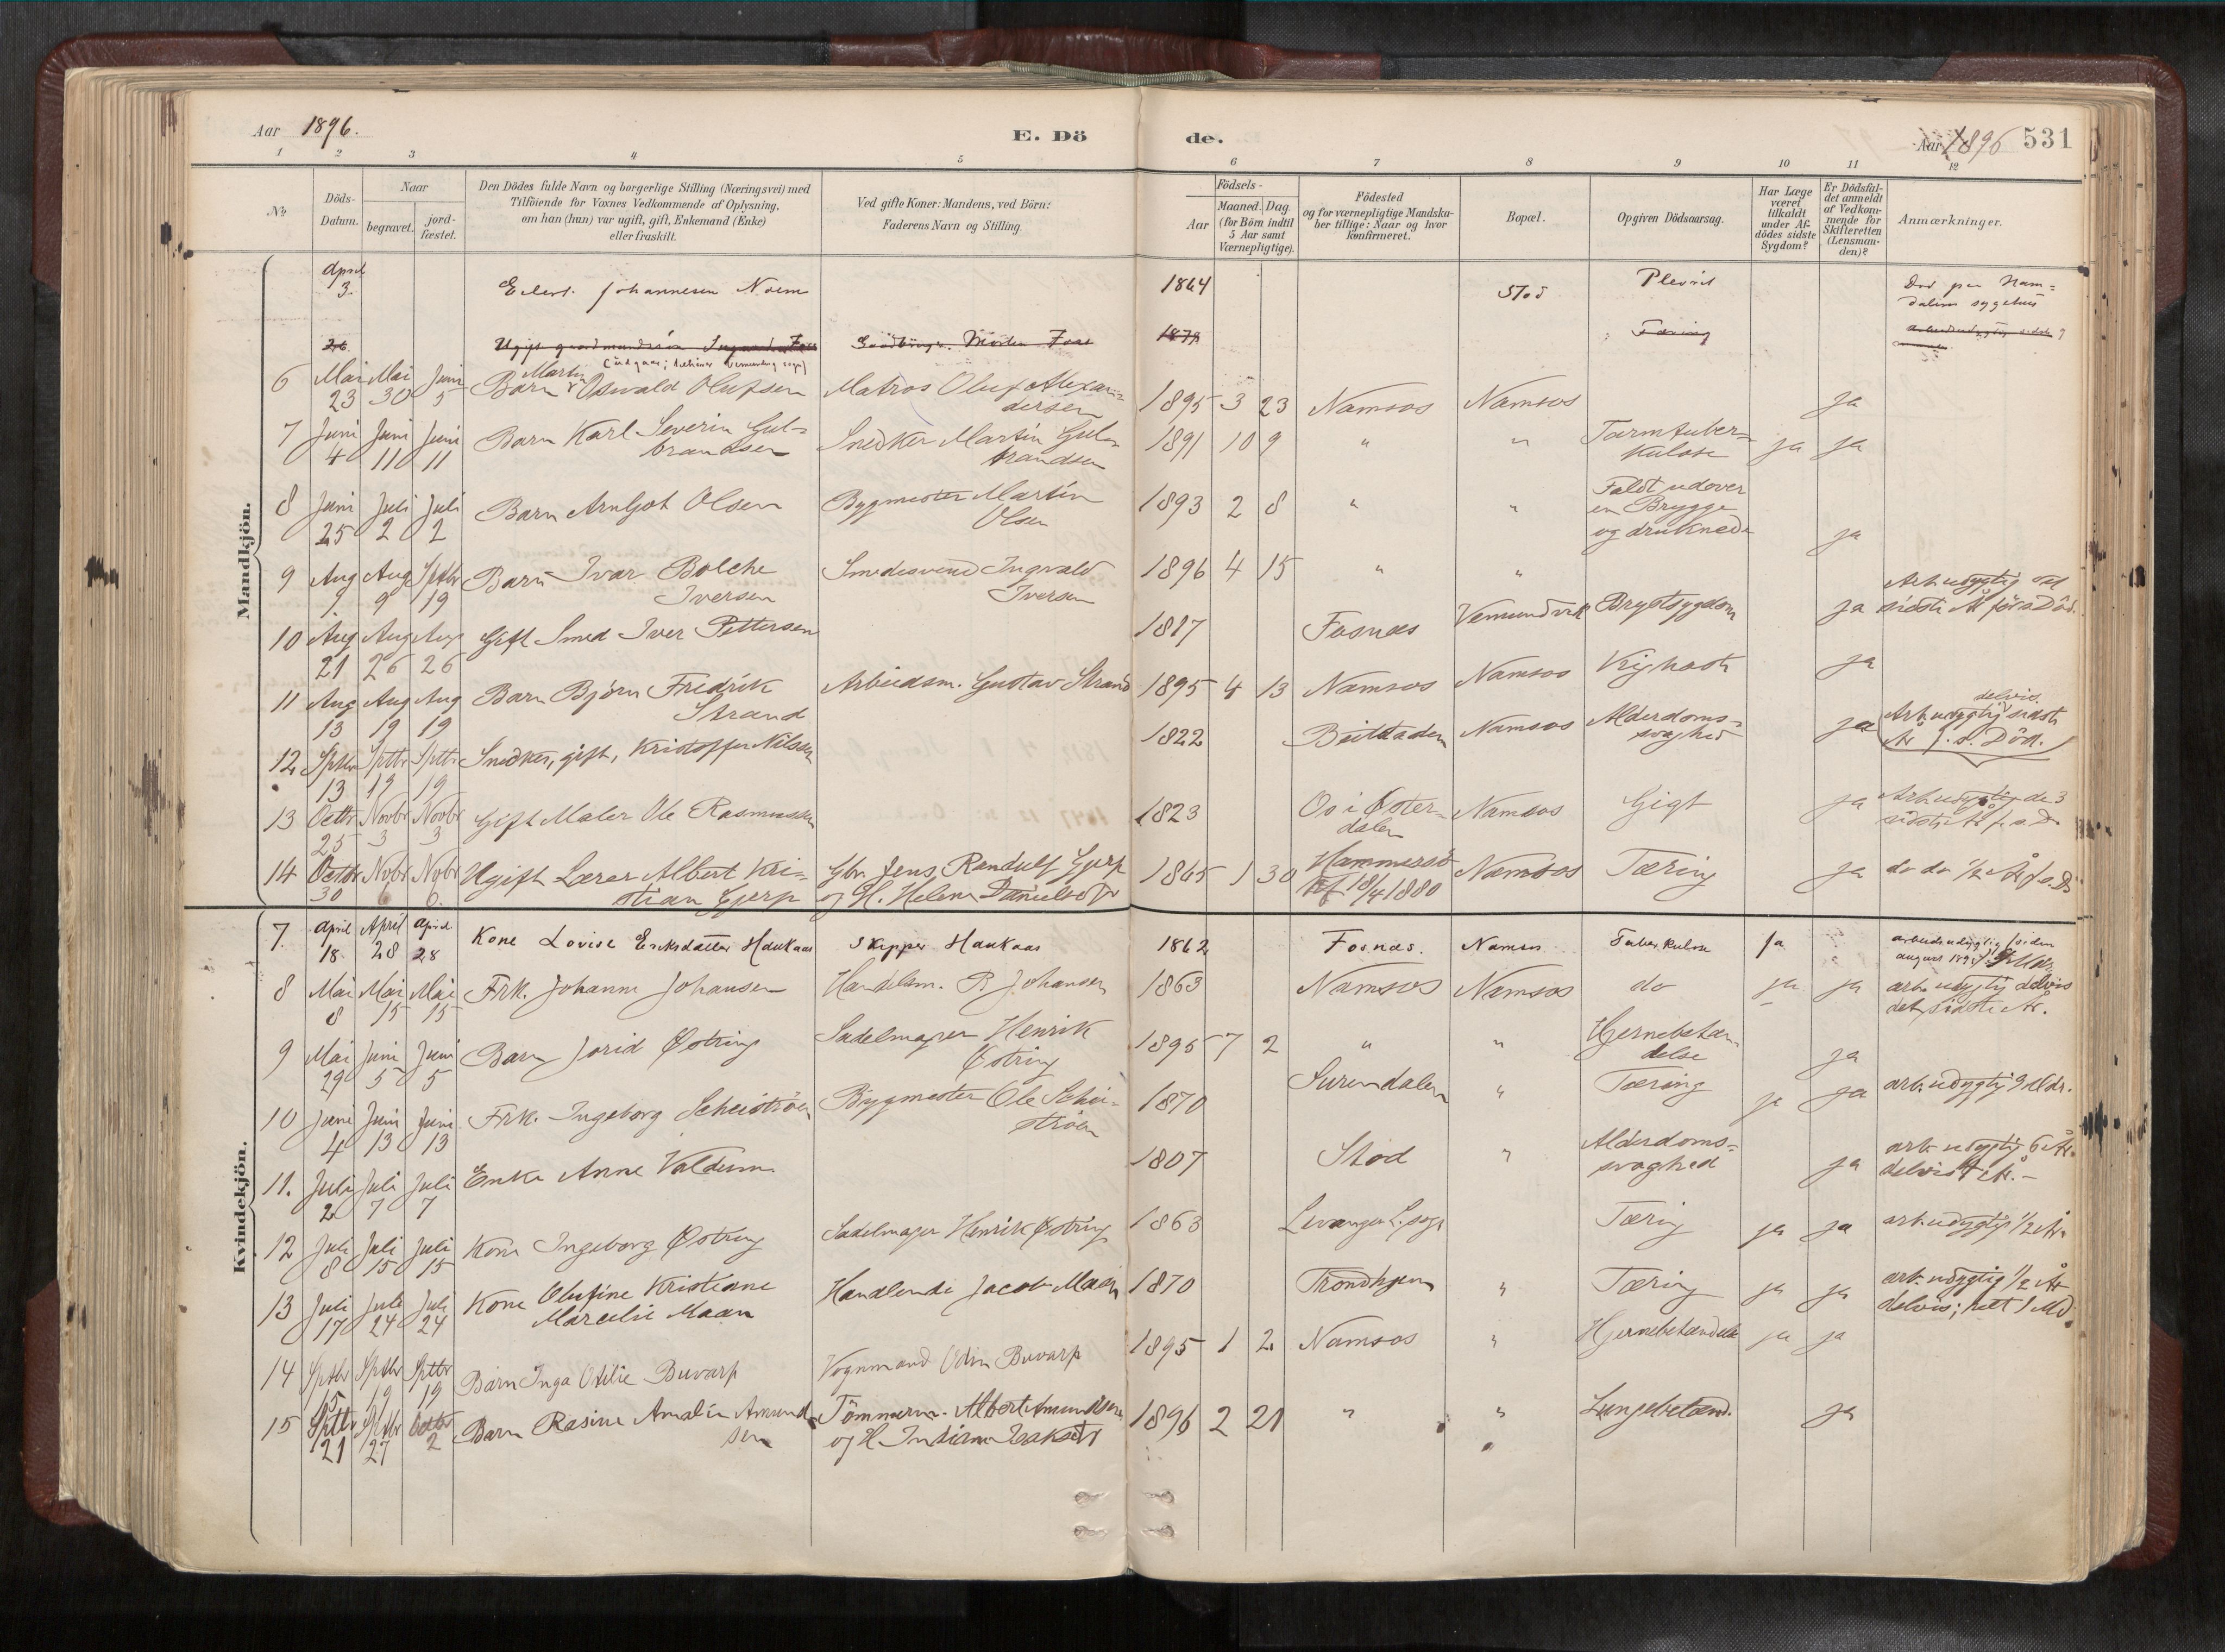 Aar 1896.
E. Dö
de.
Aar 1896
531
1 2 3 4 5 6 7 8 9 10 11 12
No
Döds-
Datum.
Naar
begravet.
jord-
fæstet.
Den Dödes fulde Navn og borgerlige Stilling (Næringsvei) med
Tilföiende for Voxnes Vedkommende af Oplysning,
om han (hun) var ugift, gift, Enkemand (Enke)
eller fraskilt.
Ved gifte Koner: Mandens, ved Börn:
Faderens Navn og Stilling.
Födsels-
Aar
Maaned. Dag
(for Börn indtil
5 Aar samt
Værnepligtige).
Födested
og for værnepligtige Mandska-
ber tillige: Naar og hvor
konfirmeret.
Bopæl.
Opgiven Dödsaarsag.
Har Læge
været
tilkaldt
under Af-
dödes sidste
Sygdom?
Er Dödsfal-
det anmeldt
af Vedkom-
mende for
Skifteretten
(Lensman-
den)?
Anmærkninger.
Mandkjön.
April
3. Eilert Johannesen 1864 Stod Plevrit Död paa Nam=
dalens sygehus
26 Ugift Gaardbrug. Morten 1879 Tæring
6 Mai Mai Juni Barn Martin Osvald Olufsen Matros Oluf Alexan=
23 30 5 dersen 1895 3 23 Namsos Namsos ja
7 Juni Juni Juni Barn Karl Severin Gul= Snedker Martin Gul= 1891 10 9 " " Tarmtuber=
4 11 11 brandsen brandsen kulose ja ja
8 Juni Juli Juli Barn Arnljot Olsen Bygmester Martin 1893 2 8 " " Faldt udover
25 2 2 Olsen en Brygge
og druknede ja
9 Aug Aug Sptbr Barn Ivar Bolche Smedesvend Ingvald 1896 4 15 " "
1. 9 19 Iversen Iversen
10 Aug Aug Aug Gift Smed Iver Pettersen 1817 Fosnæs Vemundvik Brystsygdom ja Arb. udygtig det
21 26 26 sidste År för s Död.
11 Aug Aug Aug Barn Björn Fredrik Arbeidsm. Gustav Strand 1895 4 13 Namsos Namsos Kighoste ja
13 19 19 Strand
12 Sptbr Sptbr Sptbr Snedker, gift, Kristoffer Nilsen 1822 Beitstaden Namsos Alderdoms= ja Arb. udygtig delvis sidste
13 19 19 svaghed År f. s. Död.
13 Octbr Novbr Novbr Gift Maler Ole Rasmussen 1823 Os i Öster= Namsos Gigt ja Arb. udygtig de 3
25 3 3 dalen sidste År f. s. D.
14 Octbr Nvbr Nvbr Ugift Lærer Albert Kri= Gbr. Jens Randulf Gjerp 1865 1 30 Namsos Tæring ja do do 1/2 År f. s. D.
30 6 6. stian Gjerp og H. Helene Danielsdtr 18/4 1880
Kvindekjön.
7. April April April Kone Lovise Eriksdatter Haukaas Skipper Haukaas 1862 Fosnæs. Namsos Tuberkulose ja arbeidsudygtig siden
18. 28 28 august
8 Mai Mai Mai Frk. Johanne Johansen Handelsm. P. Johansen 1863 Namsos Namsos do ja ja arb. udygtig delvis
8 15 15 det sidste År.
9 Mai Juni Juni Barn Jorid Østring Sadelmager Henrik 1895 7 2 " " Hjernebetæn
29 5 5 Østring delse ja
10 Juni Juni Juni Frk. Ingeborg Scheiströen Bygmester Ole Schei= 1870 Surendalen " Tæring ja ja arb. udygtig 9 Mdr.
4 13 13 ströen
11. Juli Juli Juli Enke Anne Valdum 1807 Stod " Alderdoms= ja arb. udygtig 6 År.
2 7 7 svaghed delvis År. -
12 Juli Juli Juli Kone Ingeborg Østring Sadelmager Henrik Østring 1863 Levanger L. sogn Tæring ja ja arb. udygtig 1/2 År.
8 15 15
13 Juli Juli Juli Kone Olufine Kristiane Handlende Jacob Maan 1870 Trondhjem " Tæring ja ja arb. udygtig 1/2 År
17 24 24 Marcelie Maan delvis; helt 1 Md.
14 Sptbr Sptbr Sptbr Barn Inga Otilie Buvarp Vognmand Odin Buvarp 1895 1 2 Namsos " Hjernebetændelse ja ja
15 19 19
15 Sptbr Sptbr Octbr Barn Rasine Amalie Amund Tömmerm. Albert Amundsen 1896 2 21 " " Lungebetænd. ja
21 27 2 sen og H.